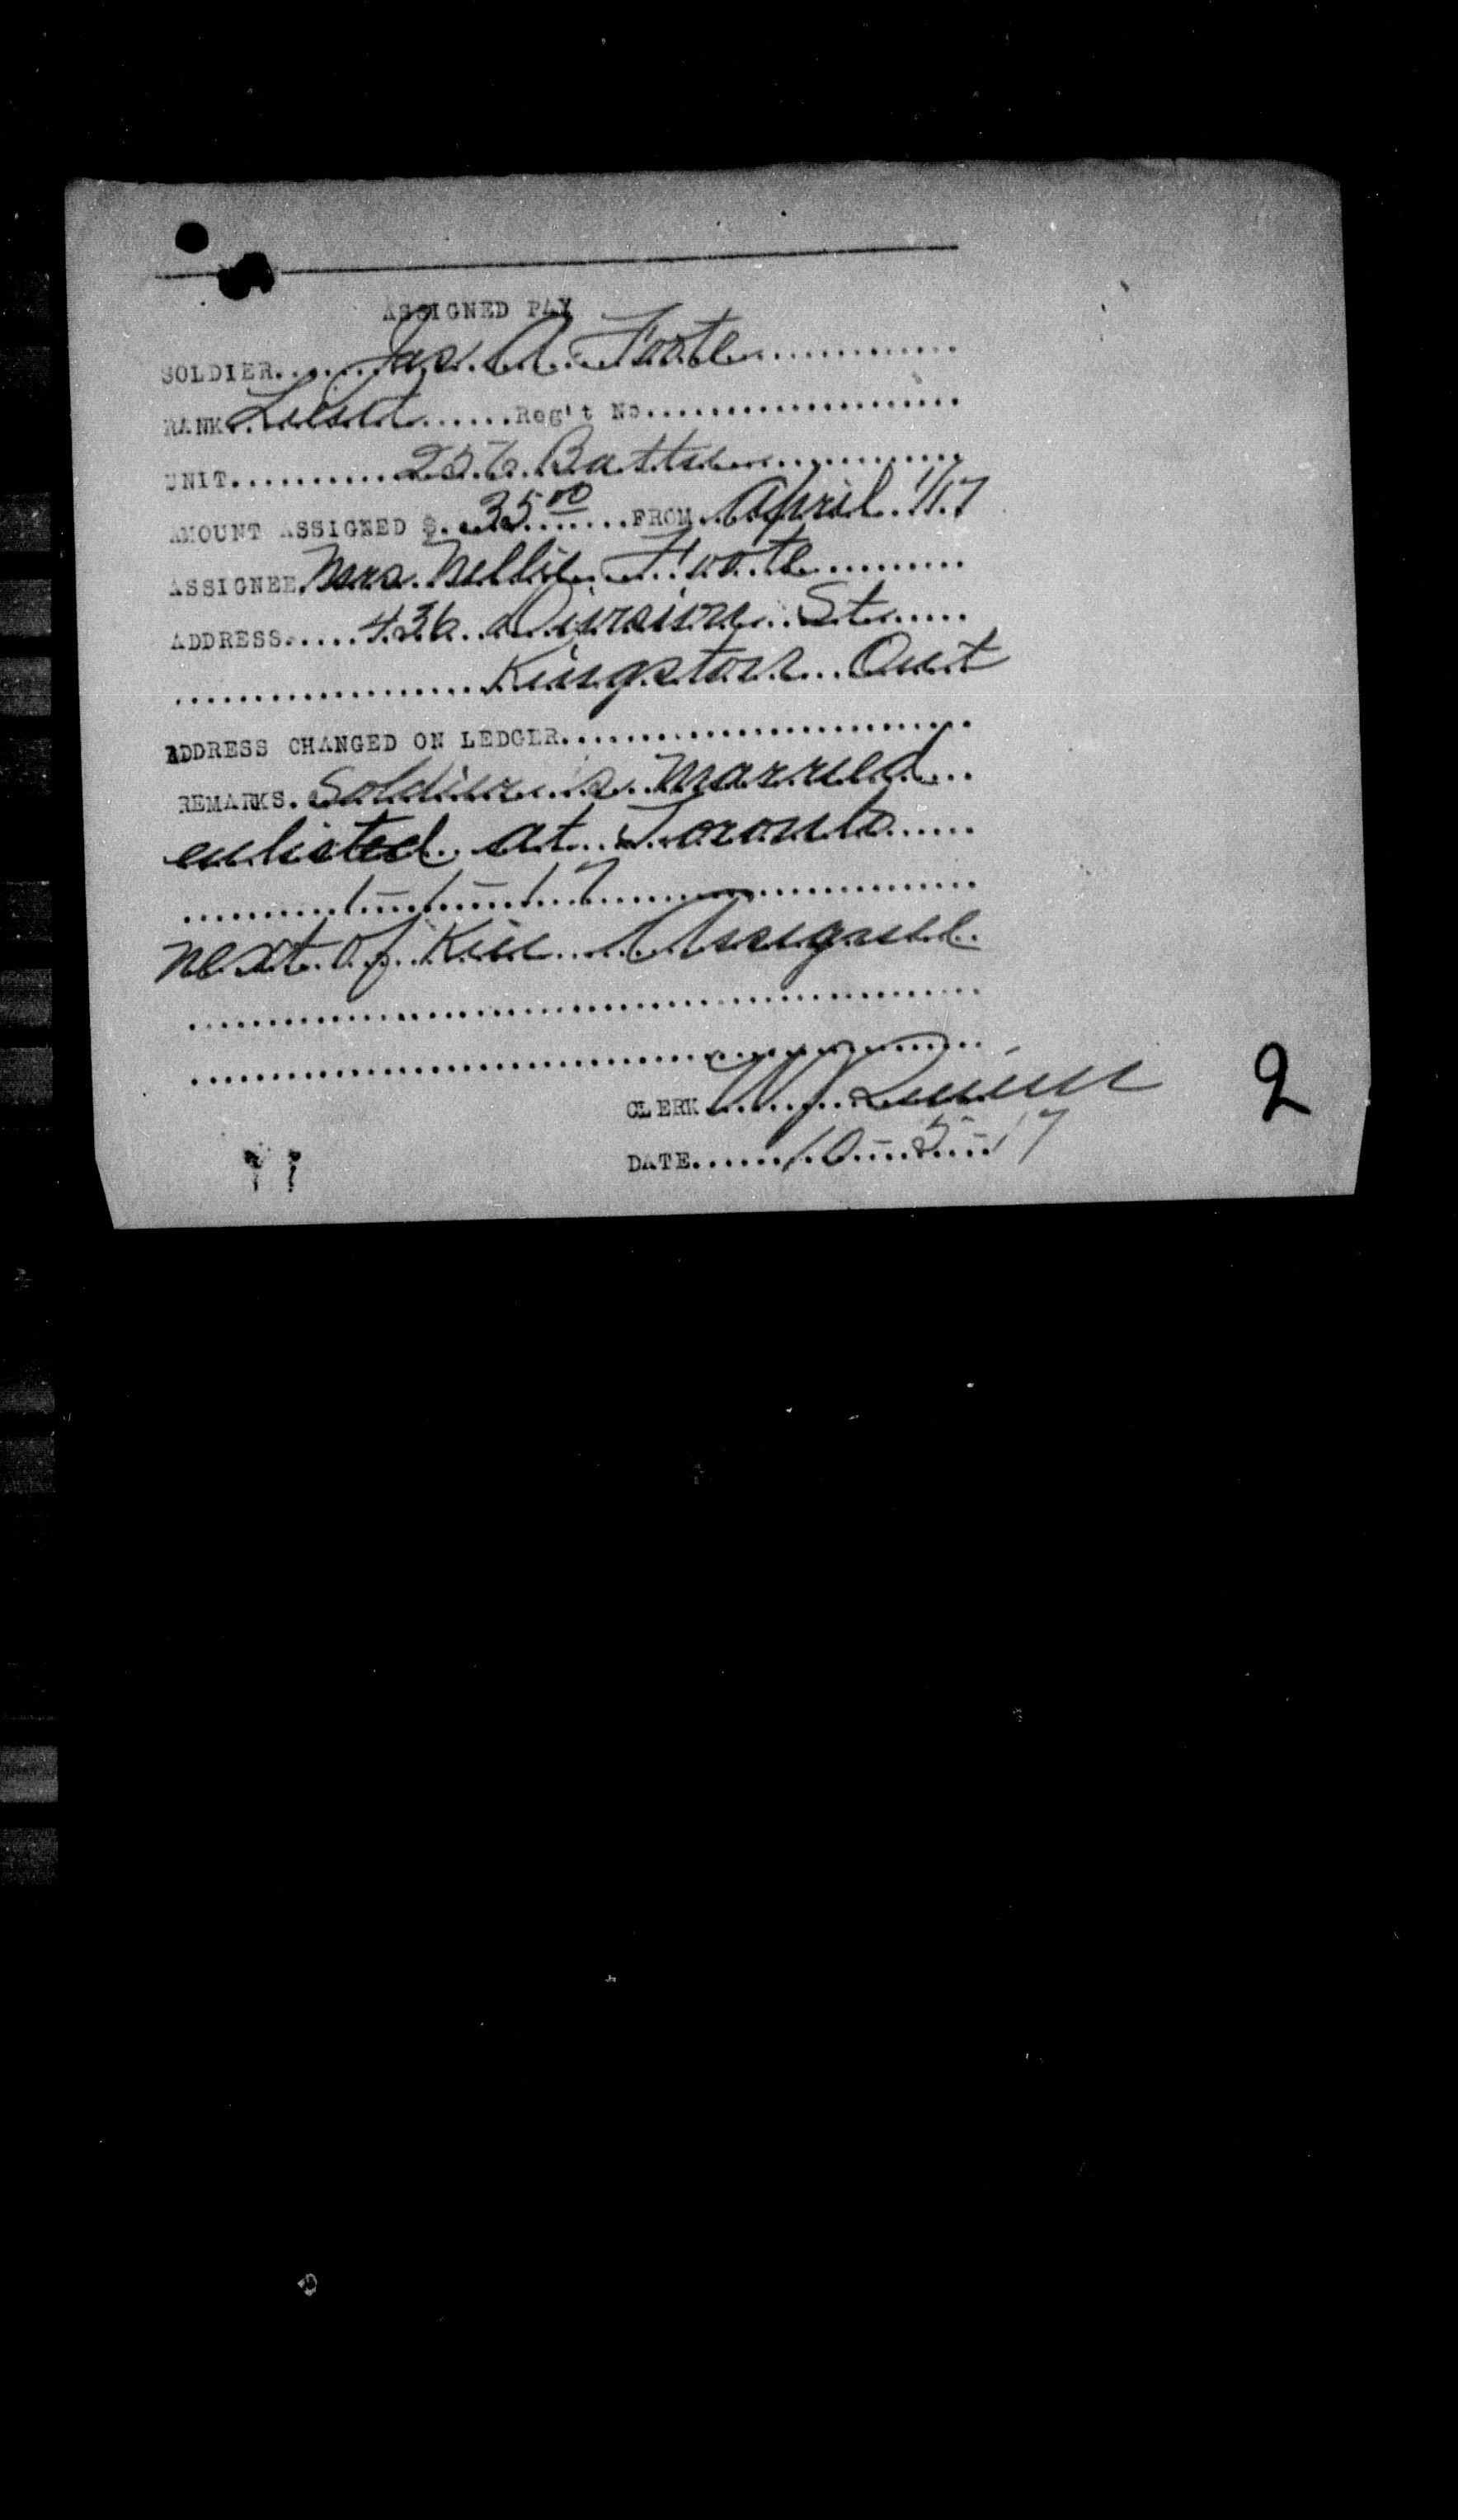 ASSIGNED PAY
SOLDIER.......Jas. A. Foote.............
RANK..Lieut......Reg't No....................
UNIT...........256 Battn............
AMOUNT ASSIGNED $..35 00......FROM..April 1/17
ASSIGNEE.Mrs. Nellie Foote..........
ADDRESS.....436 Division St......
...................Kingston Ont
ADDRESS CHANGED ON LEDGER..........................
REMARKS. Soldier is married...
enlisted at Toronto......
..........1-1-17.......................
next of Kin Assignee
CLERK W J
DATE.......10-5-17
2